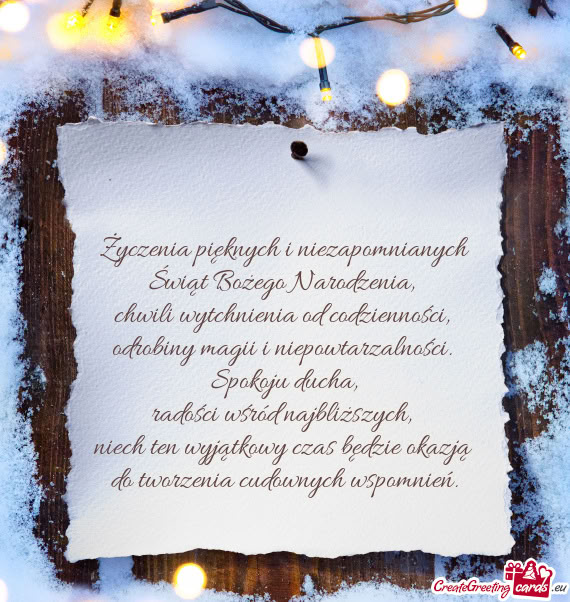 Życzenia pięknych i niezapomnianych
Świąt Bożego Narodzenia,
chwili wytchnienia od codzienności,
odrobiny magii i niepowtarzalności.
Spokoju ducha,
radości wśród najbliższych,
niech ten wyjątkowy czas będzie okazją
do tworzenia cudownych wspomnień.
CreateGreeting cards .eu